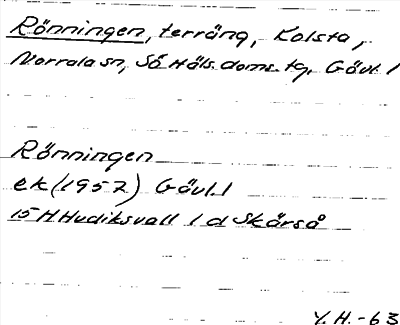 Rönningen, terräng, Kolsta,
Norrala sn, Sö Häls. doms. tg, Gävl. l
Rönningen
ek (1952) Gävl. l
15 H Hudiksvall 1 d Skärså
Y. H. -63